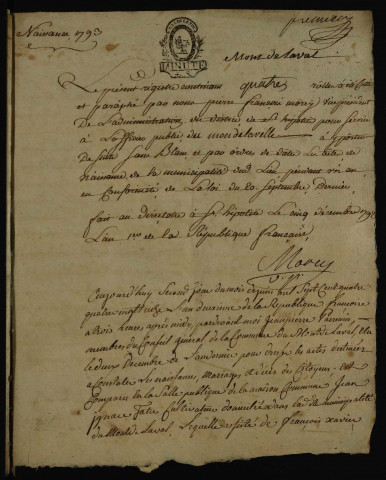 Naissance 1793
premier
MINUTE
Mont de laval
Le présent registre contenant quatre rolles a été coté
et paraphé par nous pierre françois morey vice président
De L'administration du District de St hypolite pour servir
à L'officier public du mondelavelle
De suite sans Blanc et par ordres de date
naissance de la municipalité dud. Lieu pendant
en Conformité de La loi du 20 septembre Dernier,
fait au directoire à St hipolite Le cinq décembre 1792
L'an 1er de la République françaises
Morey
V. P.
Aujourd'huy Second jour du mois de
quatre vingt treize L'an deuxieme de la République françoise
a trois heures après midi, pardevant moi Jean pierre
membre du Conseil général de la Commune du Mont de Laval, élu
le deux Decembre dernier pour dresser les actes destinés
a Constater les naissances, Mariages et décès des Citoyens, est
Comparu en la Salle publique de la maison Commune Jean
ignace Cultivateur domicilié dans lad. municipalité
du Mont de Laval, Lequel assisté de françois xavier